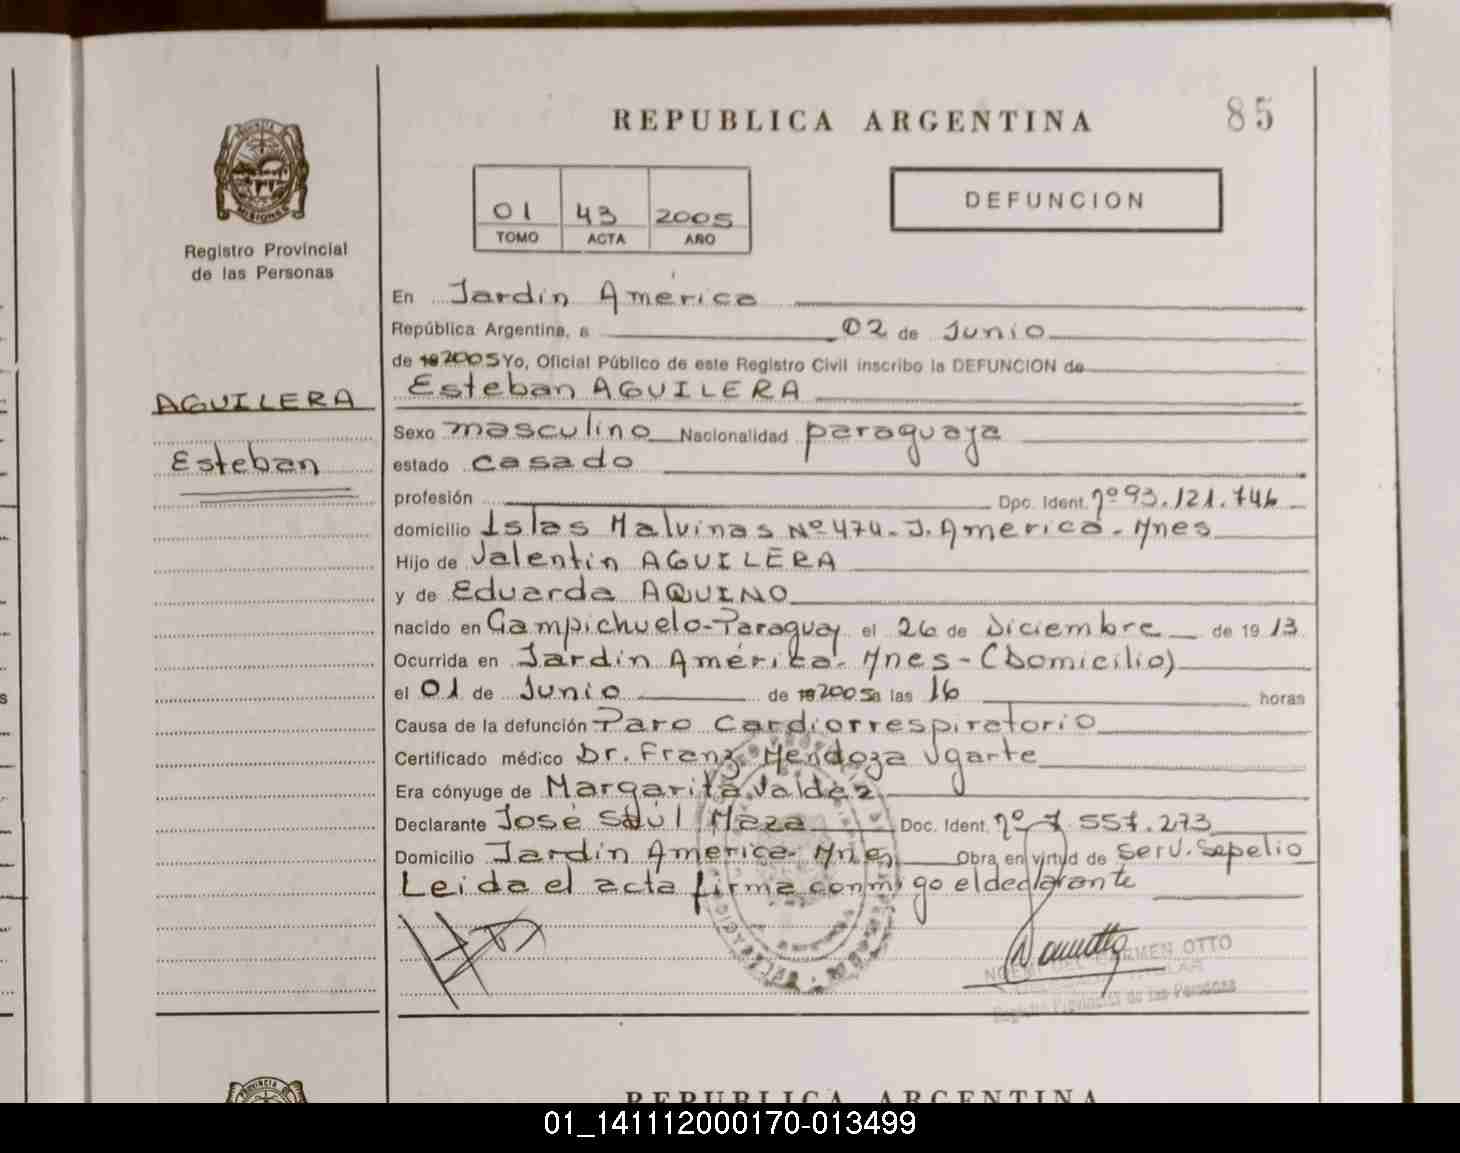 REPUBLICA ARGENTINA
85
DEFUNCION
01 43 2005
TOMO ACTA AÑO
PROVINCIA DE
MISIONES
Registro Provincial
de las Personas
AGUILERA
Esteban
En Jardín América
República Argentina, a 02 de Junio
de 2005 Yo, Oficial Público de este Registro Civil inscribo la DEFUNCION de
Esteban AGUILERA
Sexo masculino Nacionalidad paraguaya
estado casado
profesión Doc. Ident. nº 93.121.746
domicilio Islas Malvinas Nº 474 - J. América - Mnes
Hijo de Valentín AGUILERA
y de Eduarda AQUINO
nacido en Campichuelo-Paraguay el 26 de Diciembre de 1913
Ocurrida en Jardín América - Mnes - (Domicilio)
el 01 de Junio de 2005 a las 16 horas
Causa de la defunción Paro Cardiorrespiratorio
Certificado médico Dr. Franz Mendoza Ugarte
Era cónyuge de Margarita Valdéz
Declarante José Saúl Maza Doc. Ident. nº 7.557.273
Domicilio Jardín América - Mnes Obra en virtud de Serv. Sepelio
Leida el acta firma conmigo el declarante
NOEMI DEL CARMEN OTTO
Registro Provincial de las Personas
PROVINCIA DE
REPUBLICA ARGENTINA
01_141112000170-013499